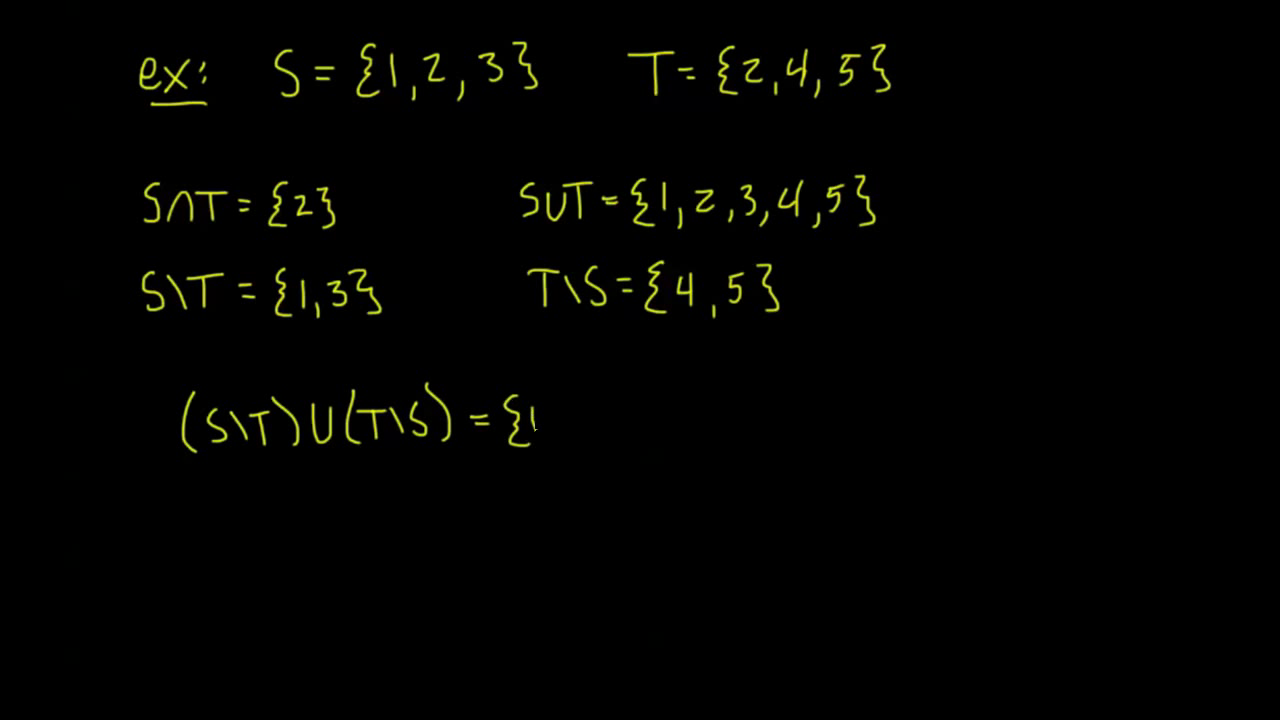 ex: S = {1,2,3} T = {2,4,5}
S∩T = {2} S∪T = {1,2,3,4,5}
S\T = {1,3} T\S = {4,5}
(S\T)∪(T\S) = {1